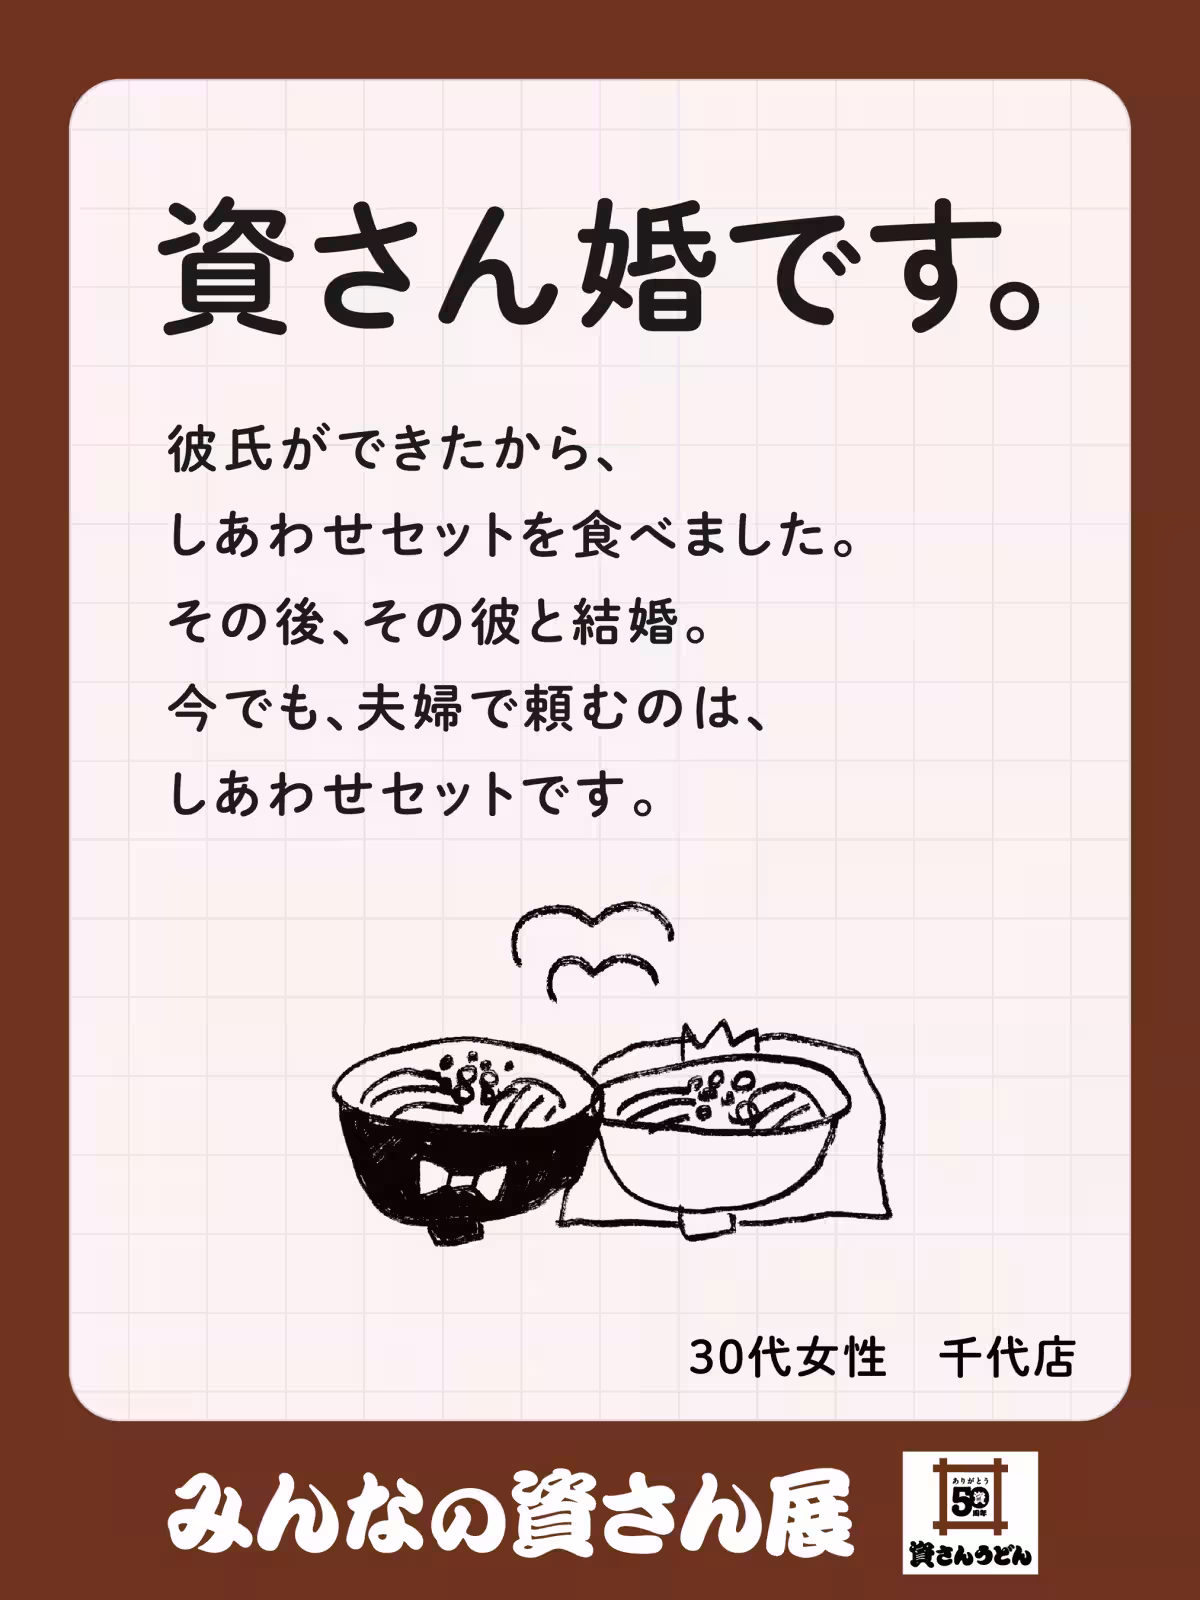 資さん婚です。
彼氏ができたから、
しあわせセットを食べました。
その後、その彼と結婚。
今でも、夫婦で頼むのは、
しあわせセットです。
30代女性　千代店
みんなの資さん展
ありがとう
50
資
周年
資さんうどん